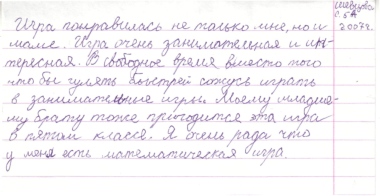 Шевцова
С. 5А
2007г.
Игра понравилась не только мне, но и
маме. Игра очень занимательная и ин-
тересная. В свободное время вместо того
что бы гулять быстрей сажусь играть
в занимательные игры. Моему младше-
му брату тоже пригодится эта игра
в пятом классе. Я очень рада что
у меня есть математическая игра.